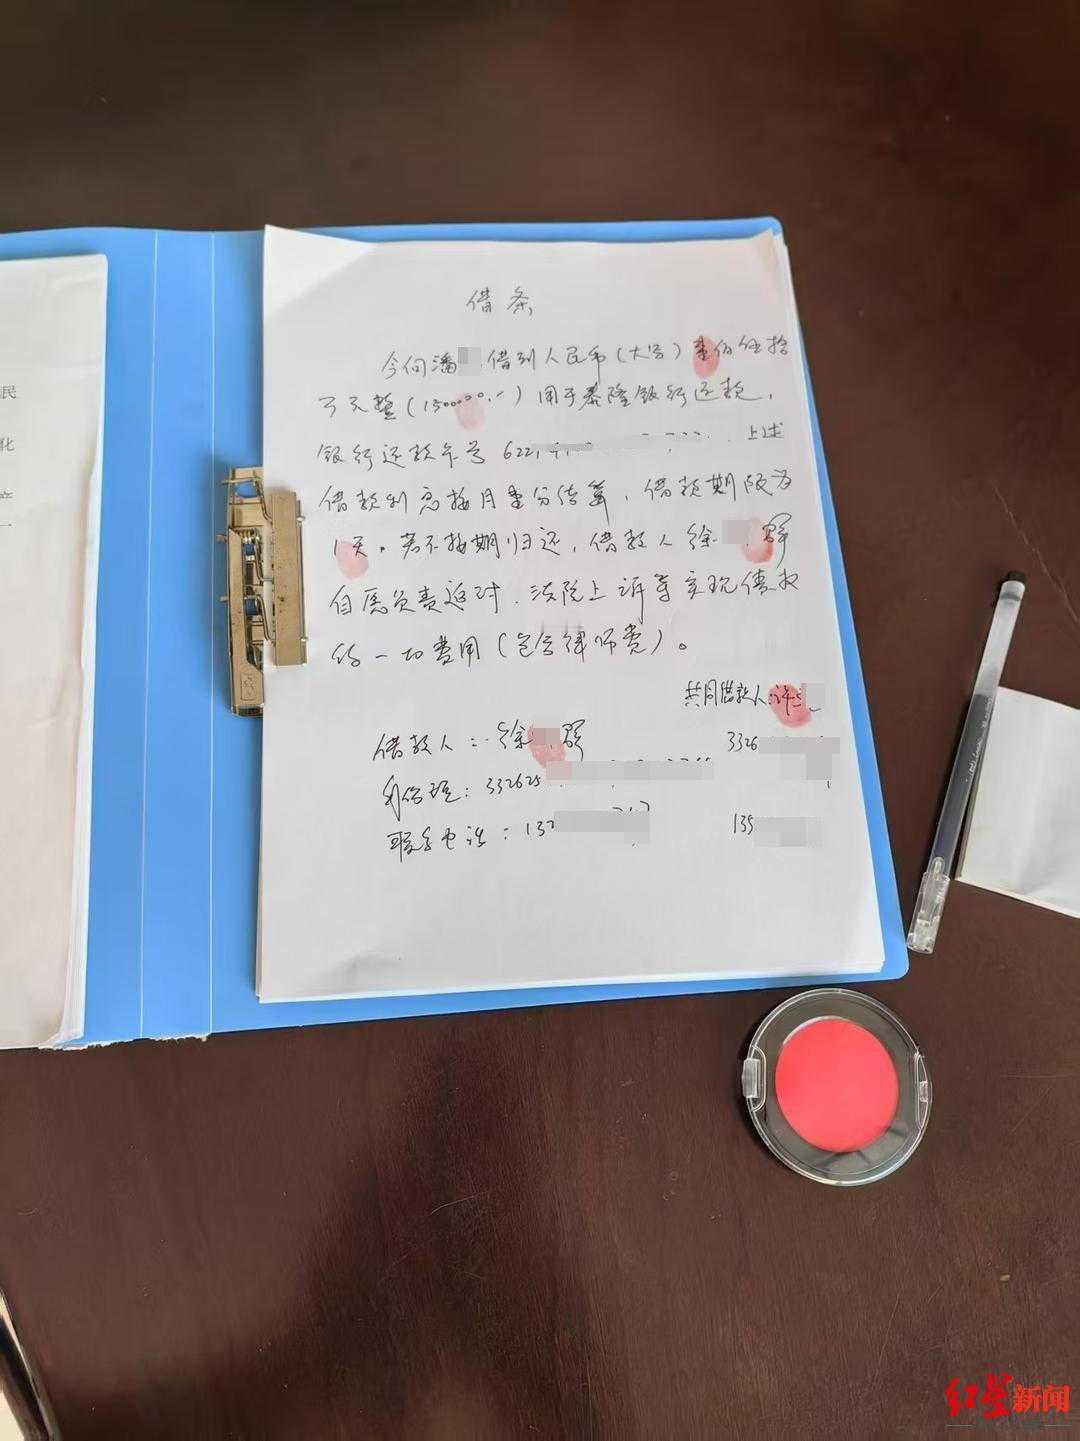 民
化
产
一
借条
今向潘 借到人民币(大写)壹佰伍拾
万元整(1500000.-)用于泰隆银行还款,
银行还款卡号622 上述
借款利息按月壹分结算,借款期限为
1天。若不按期归还,借款人徐 群
自愿负责返讨、法院上诉等实现债权
的一切费用(包含律师费)。
共同借款人:许
借款人:徐 群
3326
身份证:332625
联系电话:132
135
红星新闻